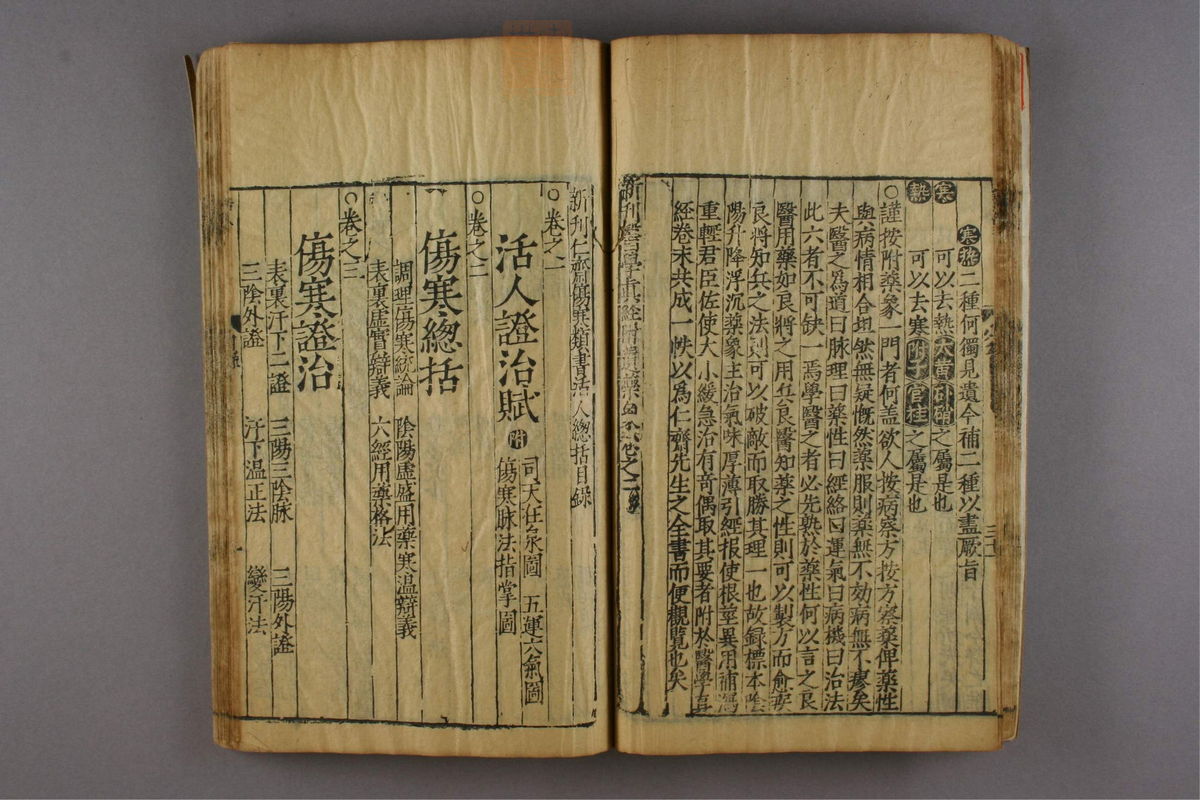 寒推二種何獨見遺今補二種以盡厥旨
寒可以去熱大黃朴硝之屬是也
熱可以去寒附子官桂之屬是也
○謹按附藥象一門者何盖欲人按病察方按方察藥俾藥性
與病情相合坦然無疑慨然藥服則藥無不効病無不瘳矣
夫醫之爲道曰脉理曰藥性曰經絡曰運氣曰病機曰治法
此六者不可缺一焉學醫之者必先熟於藥性何以言之良
醫用藥如良將之用兵良醫知藥之性則可以製方而愈疾
良將知兵之法則可以破敵而取勝其理一也故録標本陰
陽升降浮沉藥象主治氣味厚薄引經报使根莖異用補瀉
重輕君臣佐使大小緩急治有竒偶取其要者附於醫學真
經卷末共成一帙以爲仁齋先生之全書而便觀覽也矣
新刊醫學真經附遺藥象卷之二
新刊仁齋傷寒類書活人總括目錄
○卷之一
活人證治賦 附 司天在泉圖 五運六氣圖
傷寒脉法指掌圖
○卷之二
傷寒總括
調理傷寒統論 陰陽虛盛用藥寒温辯義
表裏虛實辯義 六經用藥格法
○卷之三
傷寒證治
表裏汗下二證 三陽三陰脉 三陽外證
三陰外證 汗下温正法 變汗法